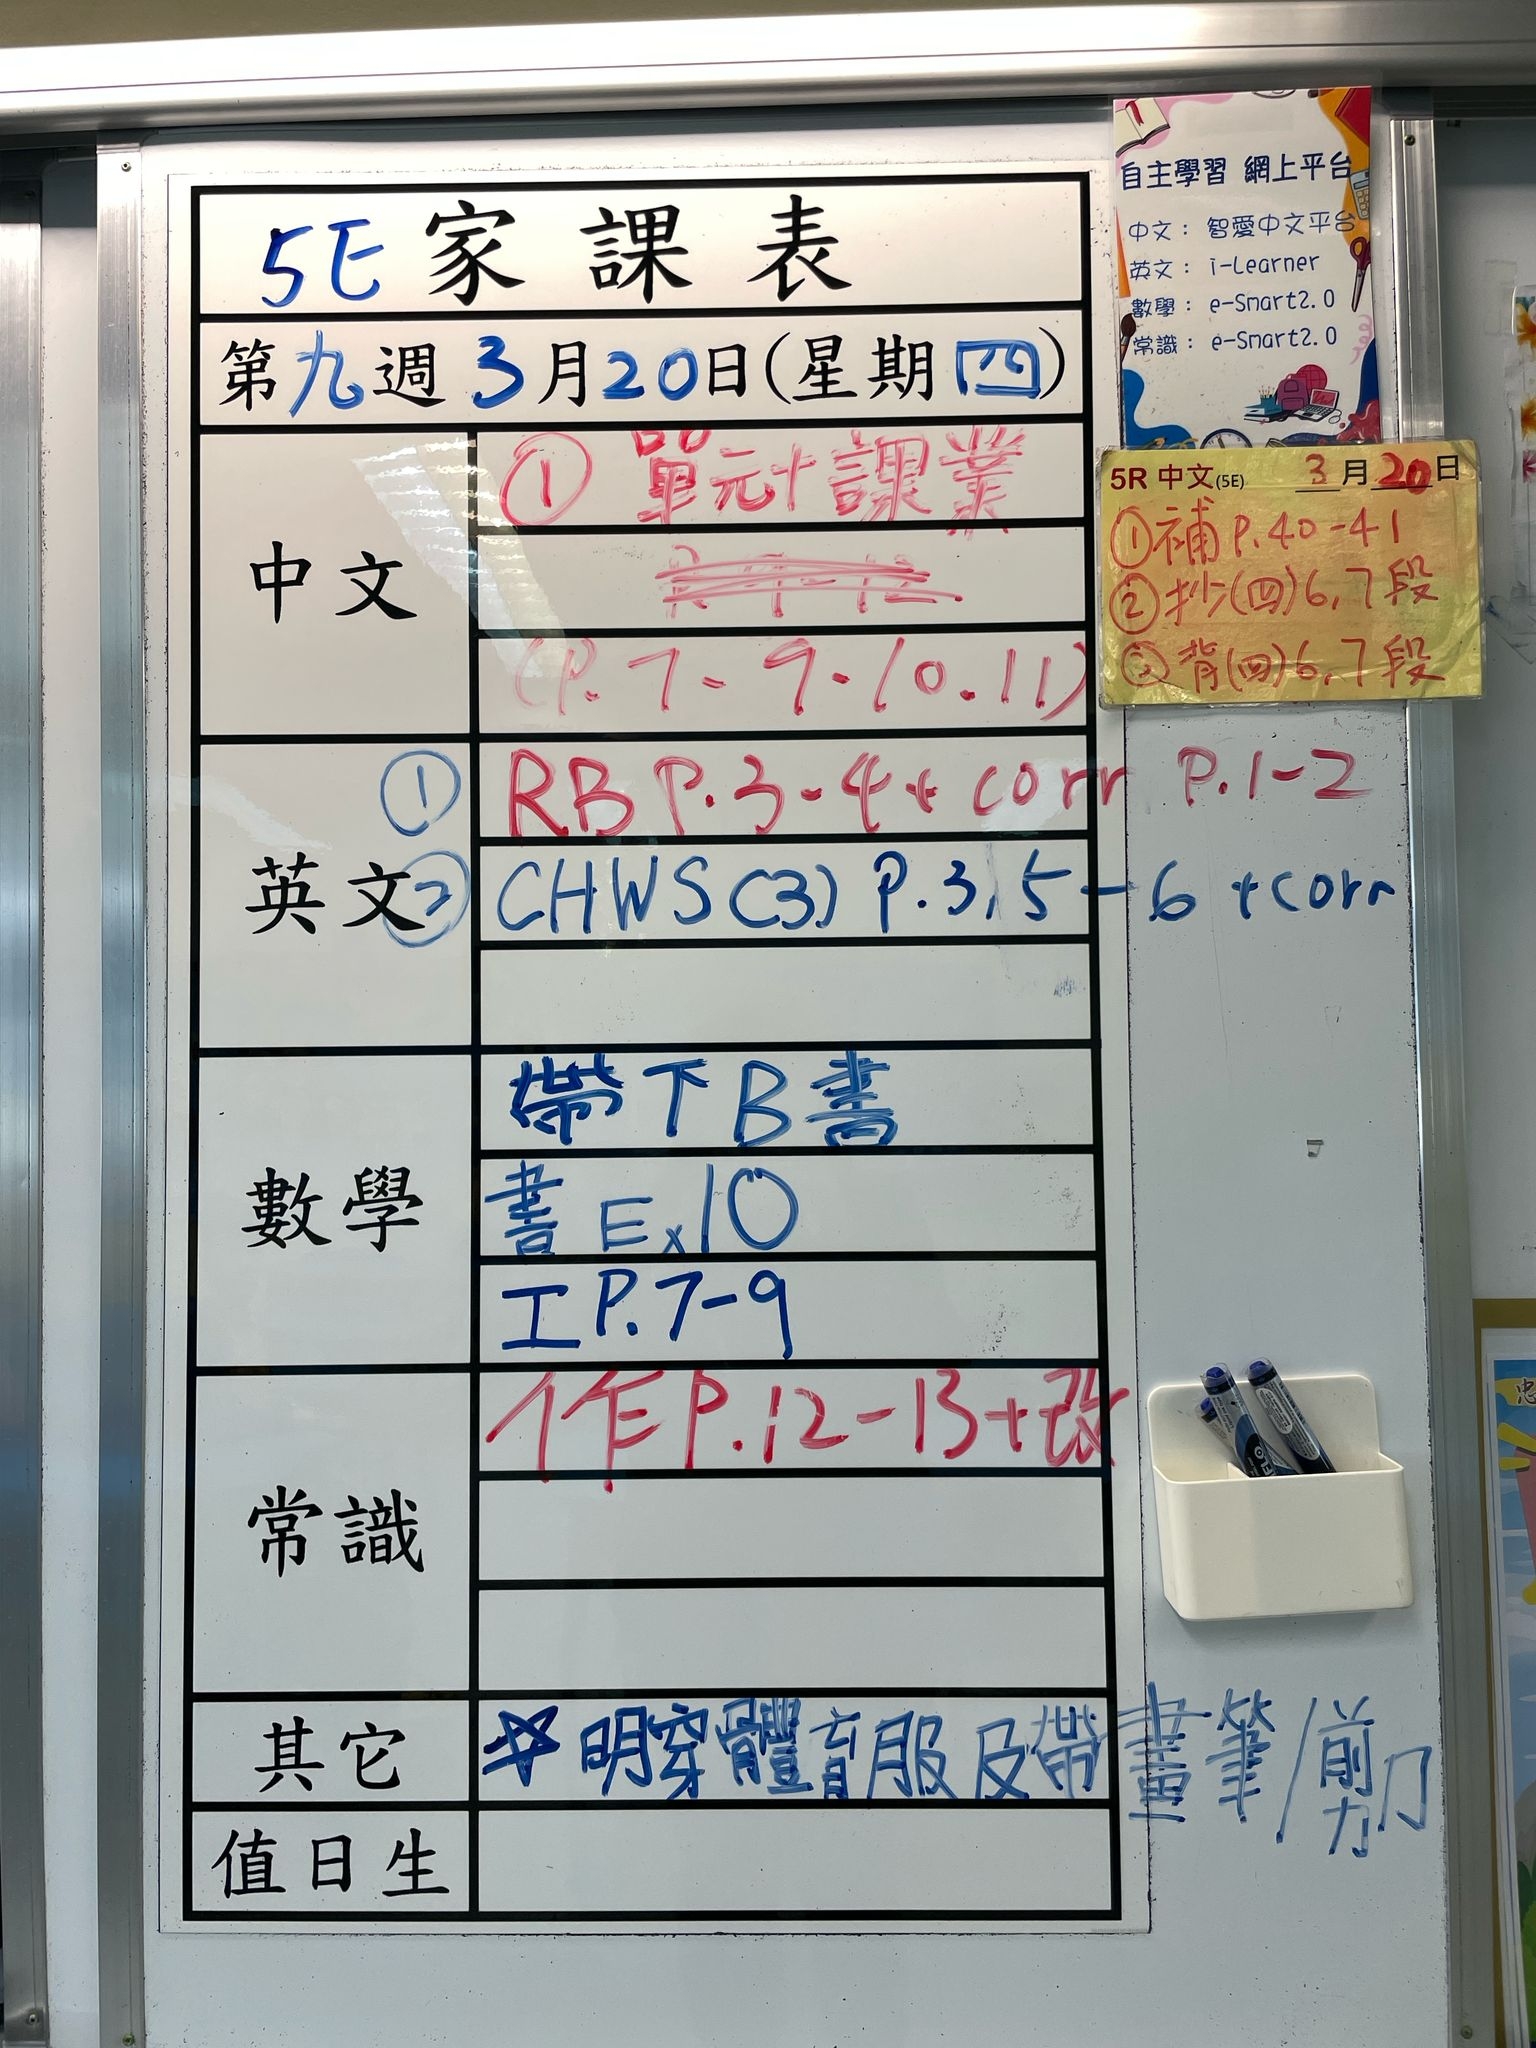 5E 家課表
第九週 3月20日(星期四)
中文
① 單元十課業
(P.7-9-10.11)
英文
① RB P.3-4 + corr P.1-2
② CHWS(3) P.3,5-6 + corr
數學
帶下B書
書 Ex10
工P.7-9
常識
作P.12-13+改
其它
☆明穿體育服及帶畫筆/剪刀
值日生
自主學習 網上平台
中文： 智愛中文平台
英文： i-Learner
數學： e-Smart2.0
常識： e-Smart2.0
5R 中文(5E) 3月20日
①補 P.40-41
②抄(四)6,7段
③背(四)6,7段